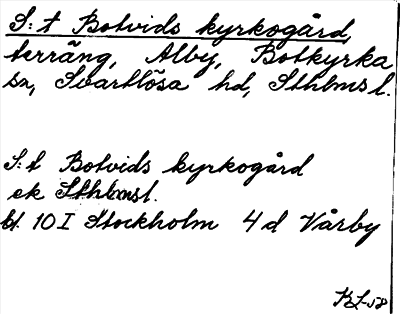 S:t Botvids kyrkogård,
terräng, Alby, Botkyrka
sn, Svartlösa hd, Sthlms l.
S:t Botvids kyrkogård
ek Sthlmsl.
bl. 10 I Stockholm 4 d Vårby
BL-58